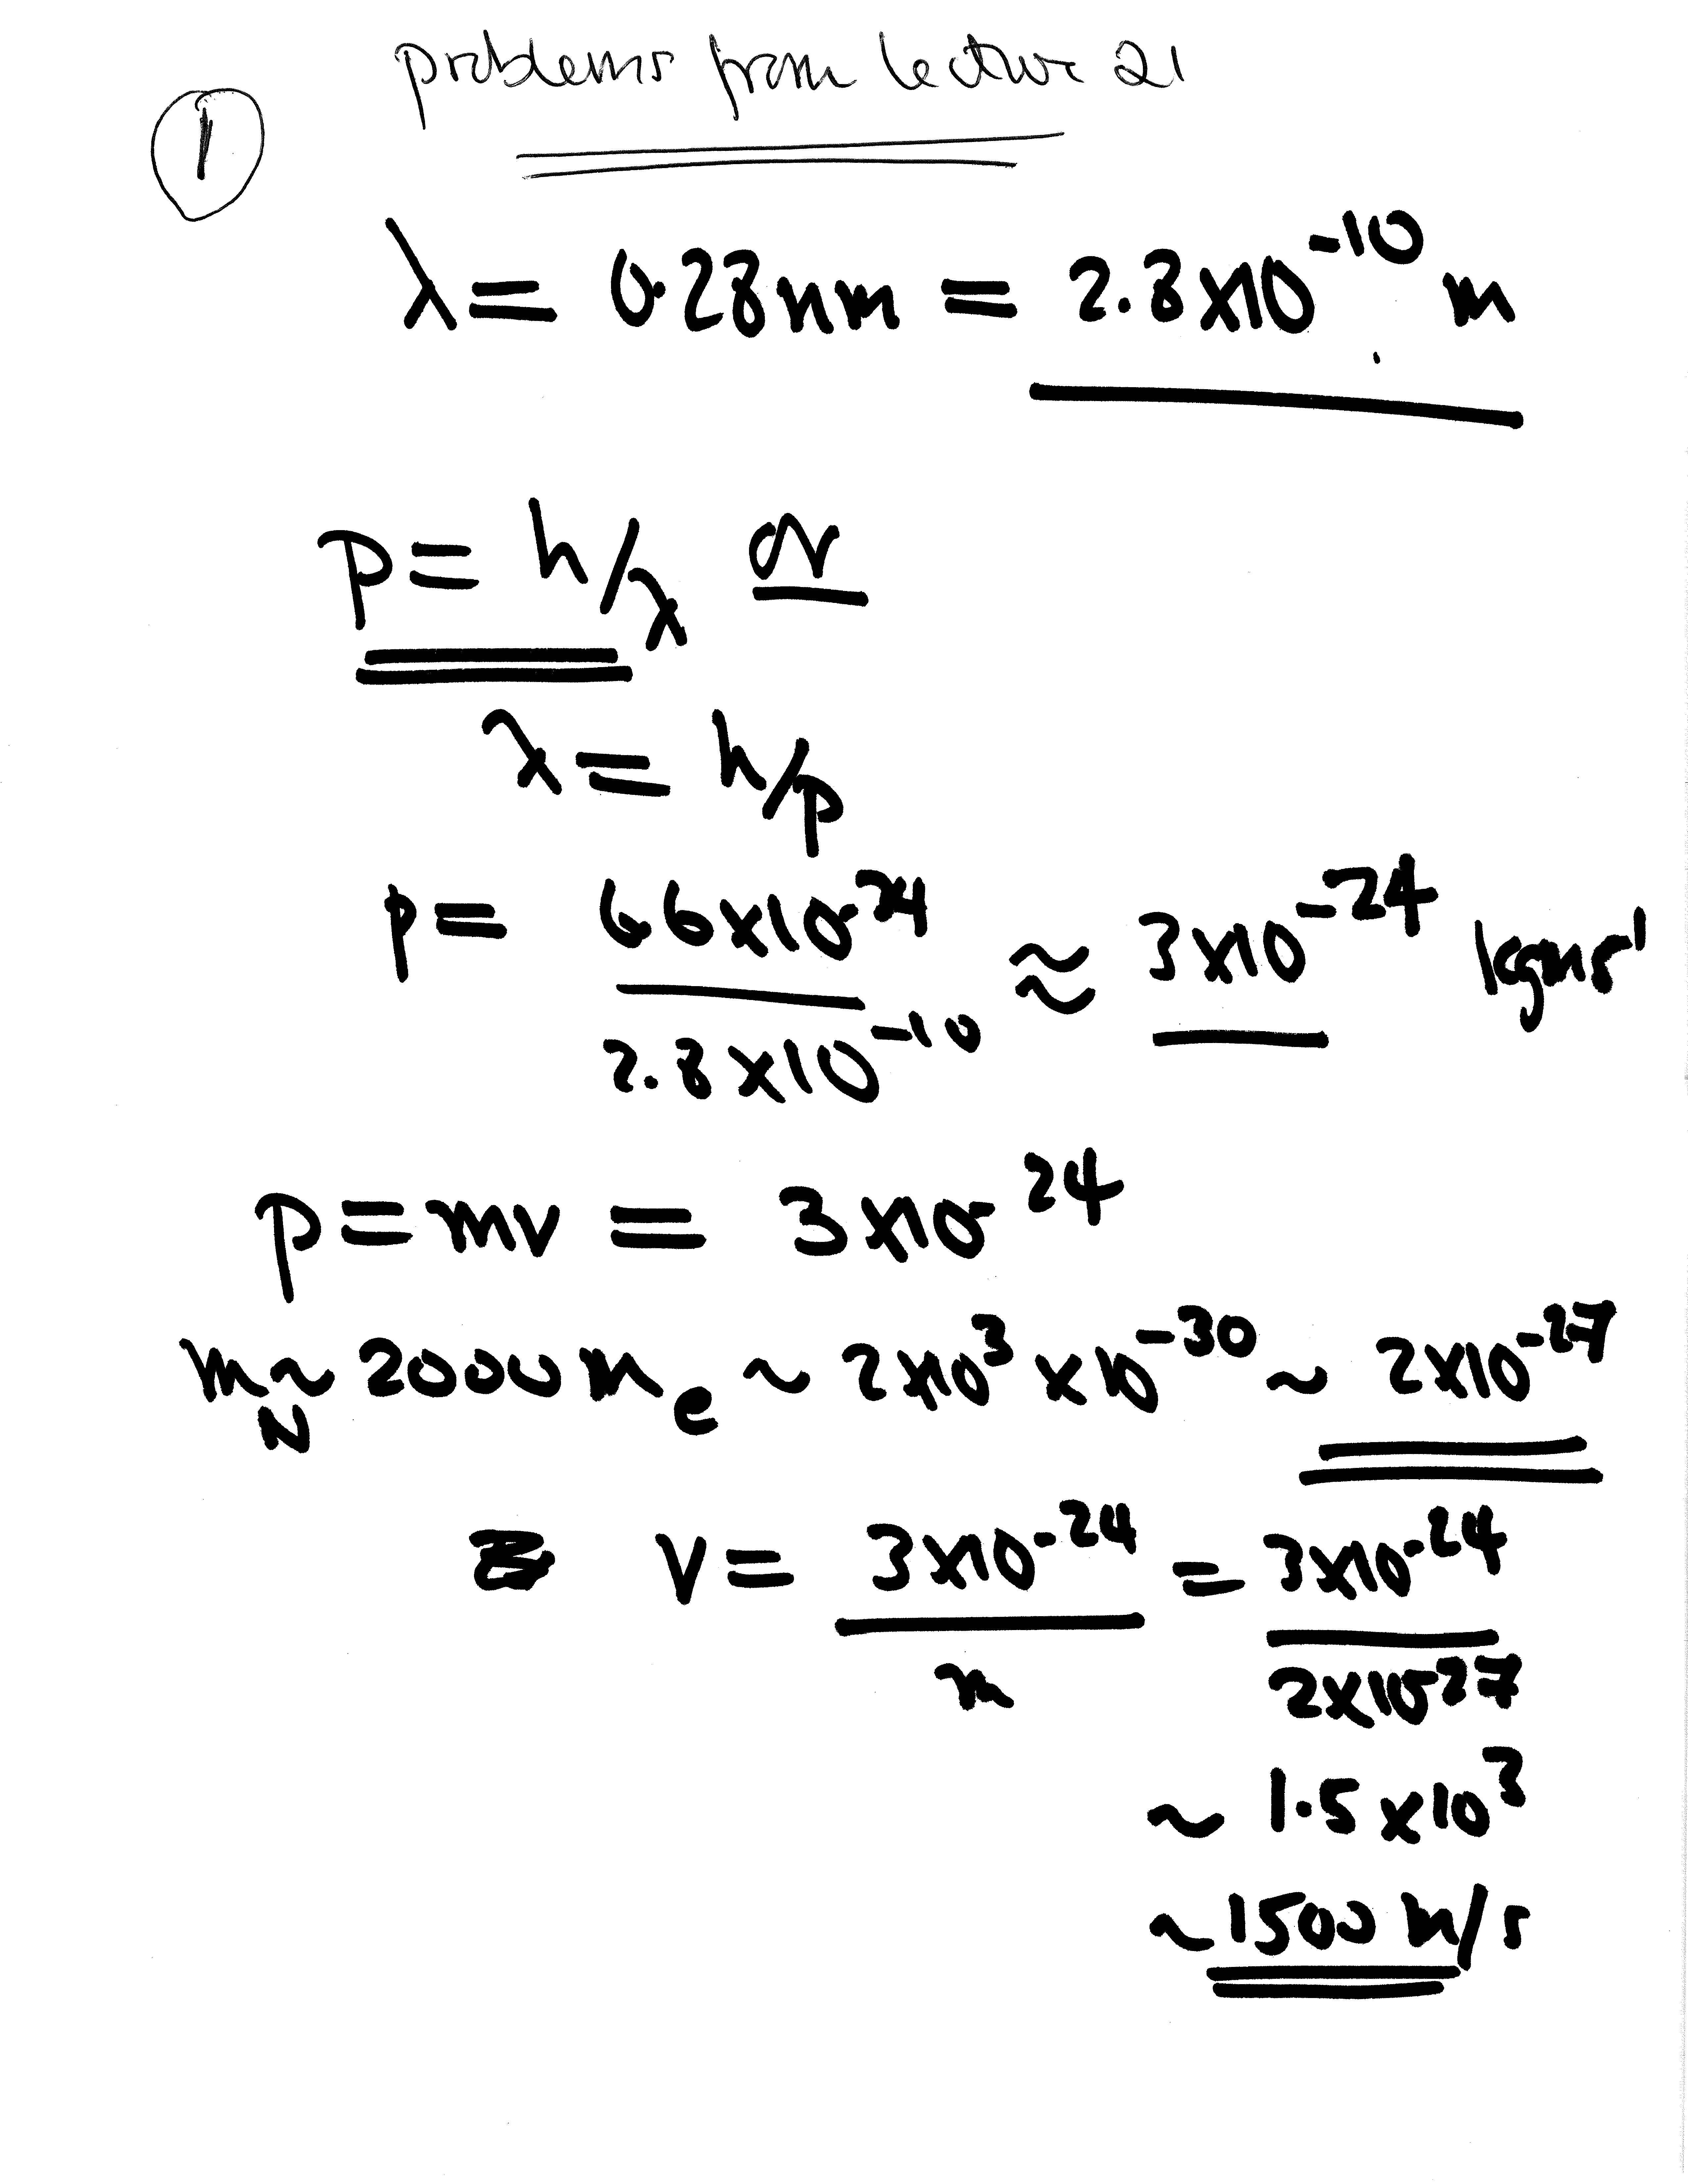 problems from lecture 21
1
λ = 0.28nm = 2.8x10^-10 m
p = h/λ or
λ = h/p
p = 66x10^-34 / 2.8x10^-10 ≈ 3x10^-24 kgms^-1
p = mv = 3x10^-24
m_N ~ 2000 m_e ~ 2x10^3 x 10^-30 ~ 2x10^-27
v = 3x10^-24 / m = 3x10^-24 / 2x10^-27
~ 1.5x10^3
~ 1500 m/s